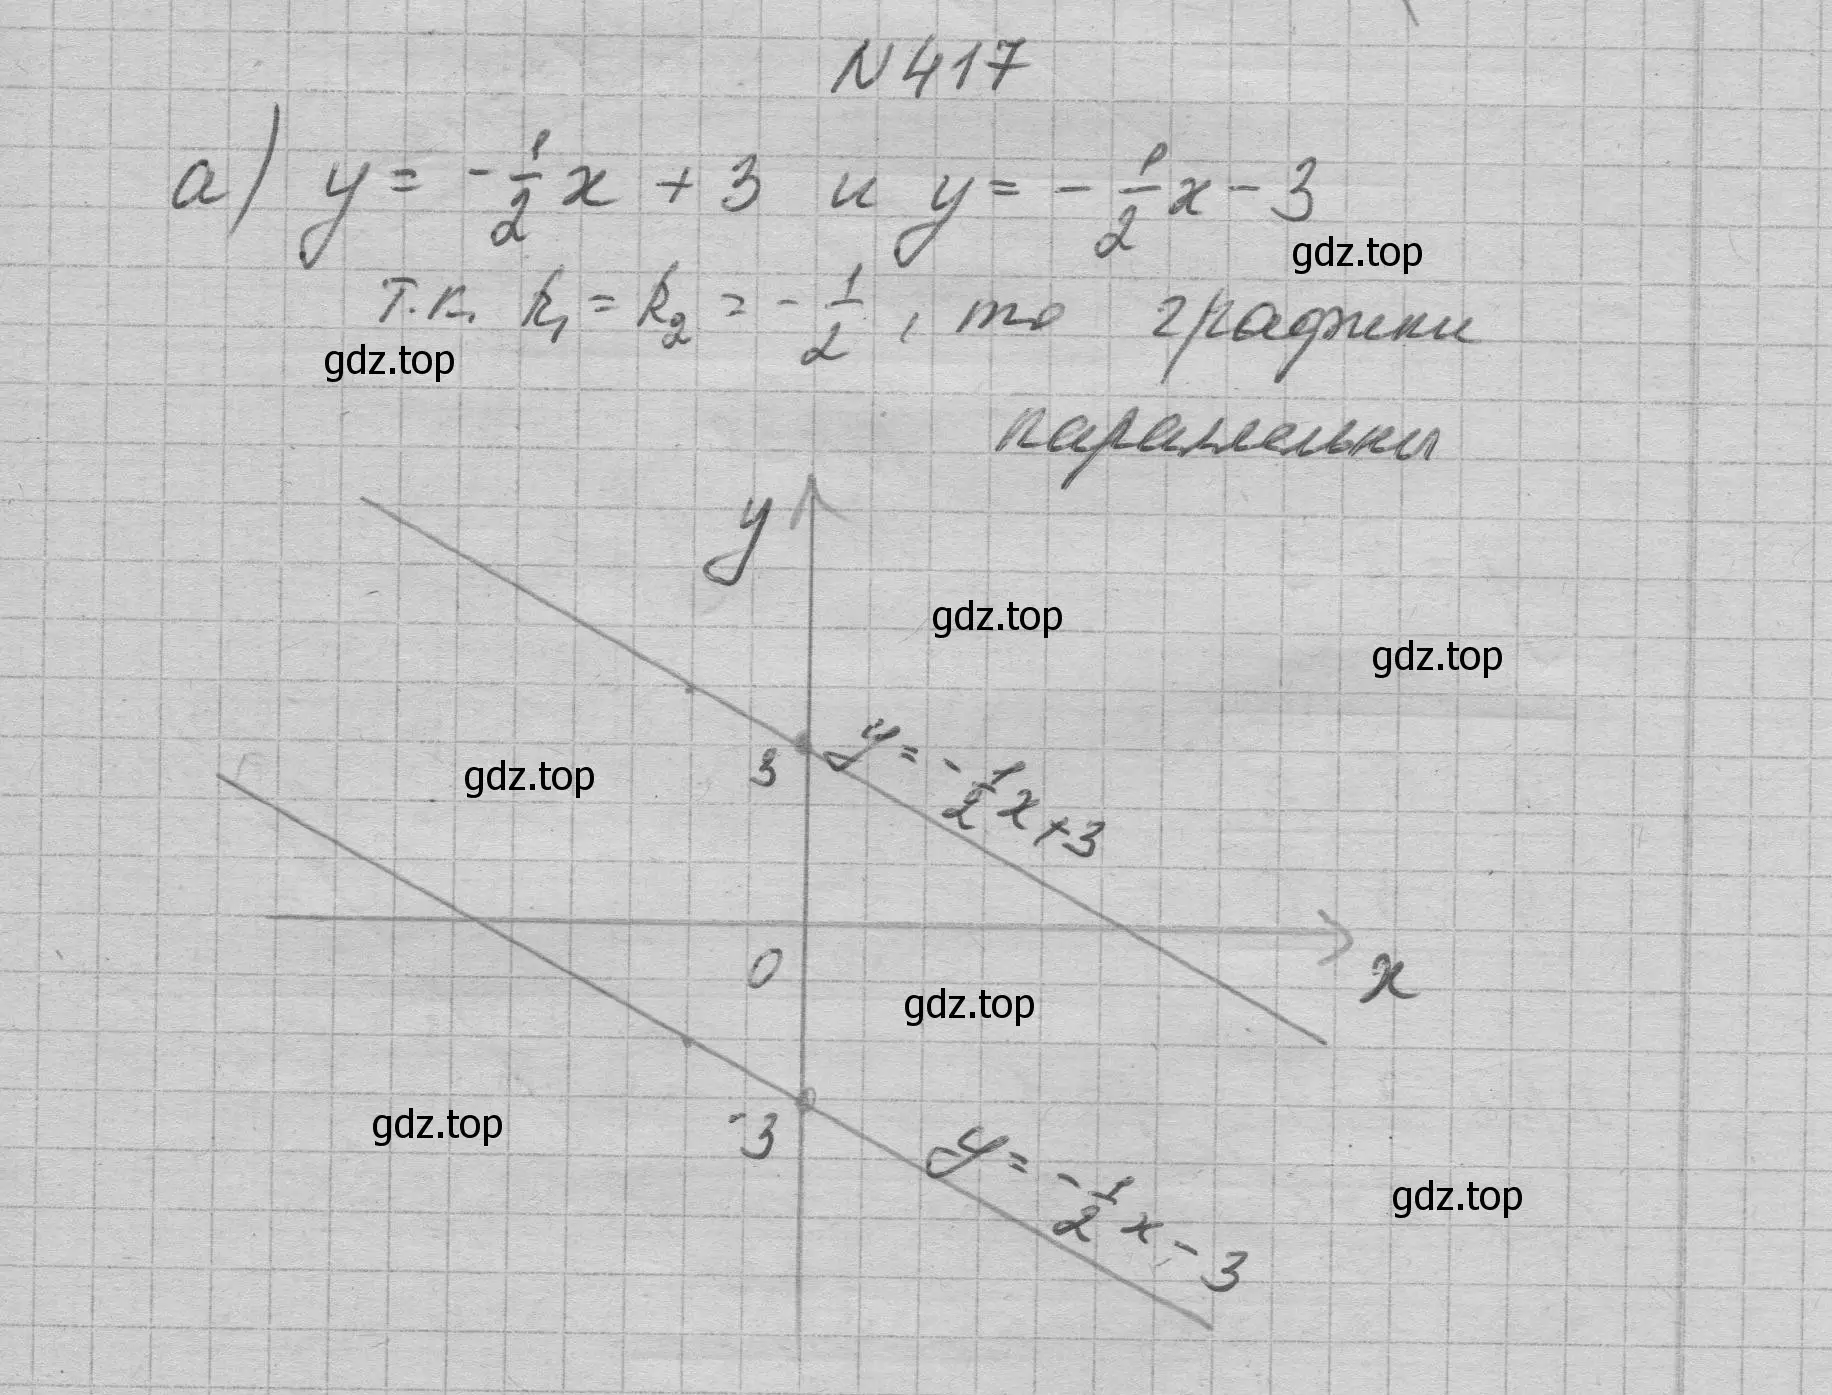 N 417
а) y = -1/2 x + 3 и y = -1/2 x - 3
gdz.top
т.к. k₁ = k₂ = -1/2, то графики
gdz.top
параллельны
y
gdz.top
gdz.top
gdz.top
3
y = -1/2 x + 3
0
x
gdz.top
gdz.top
-3
y = -1/2 x - 3
gdz.top